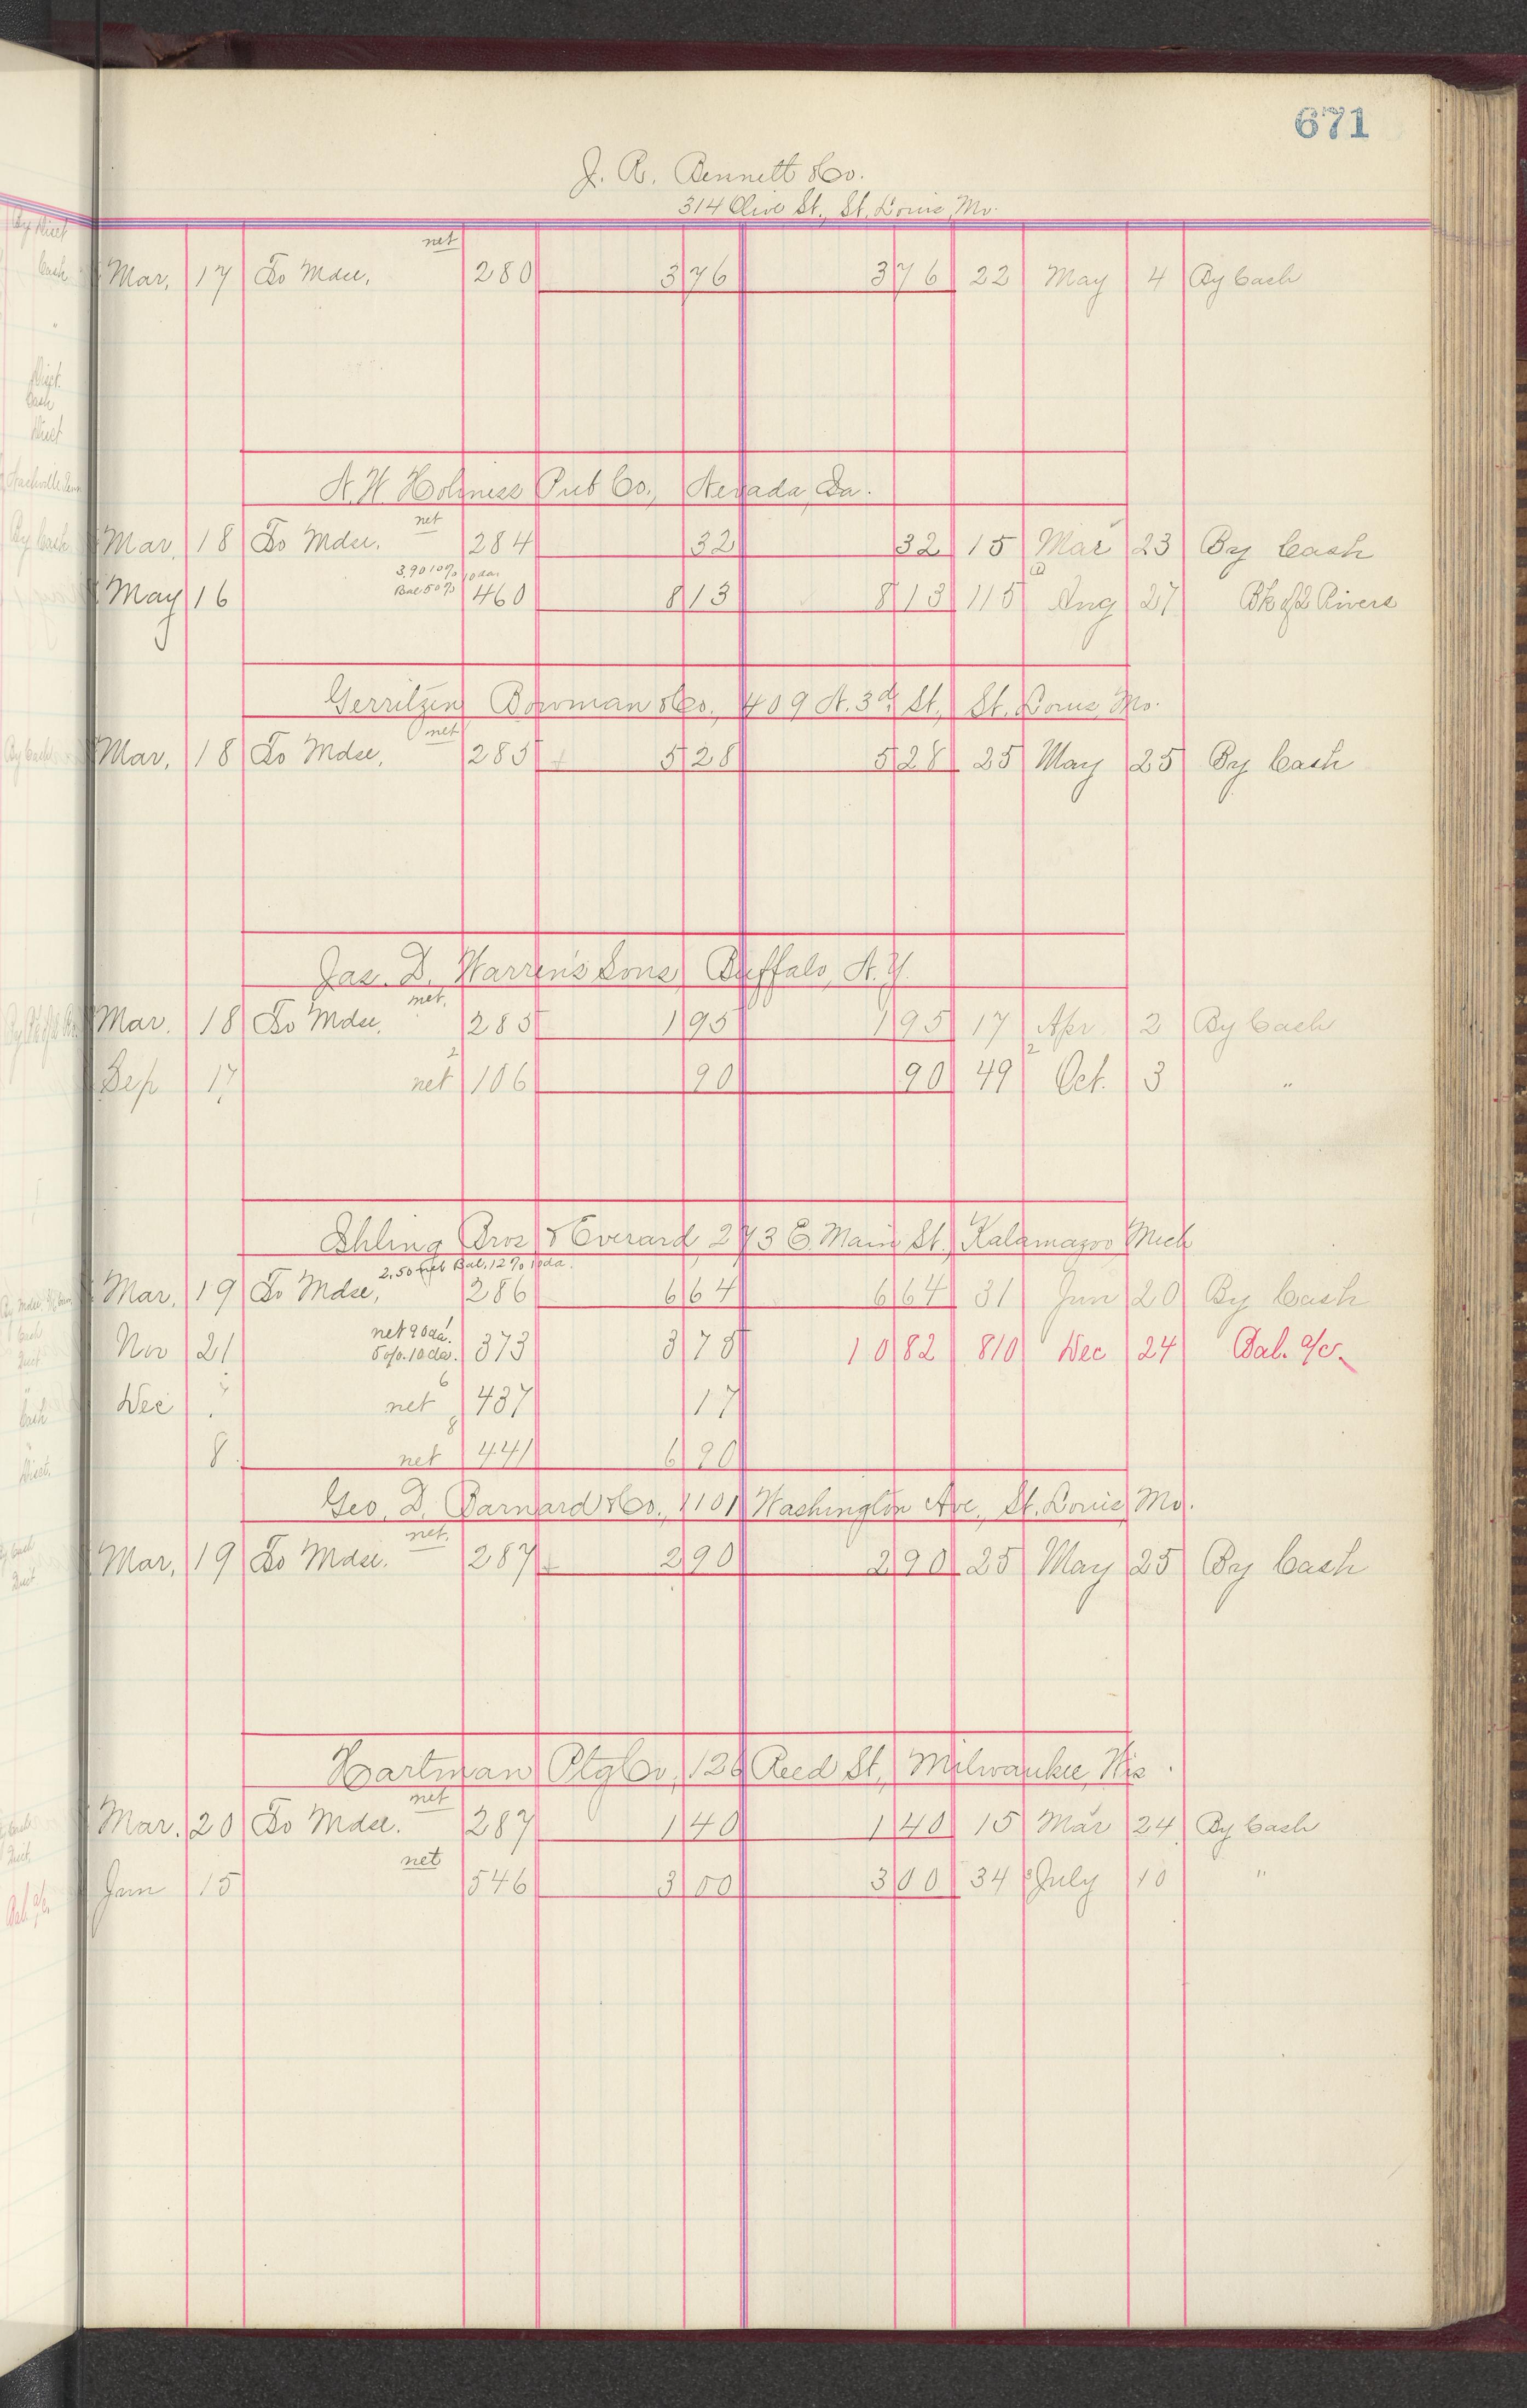 671
J. R. Bennett & Co.
314 Olive St., St. Louis, Mo.
net
Mar. 17 To Mdse. 280 3 76 3 76 22 May 4 By Cash
N. W. Holiness Pub Co., Nevada, Ia.
net
Mar. 18 To Mdse. 284 32 32 15 Mar 23 By Cash
3.90 10% 10 da.
Bal 50%
May 16 460 8 13 8 13 115 Aug 27 Bk of 2 Rivers
Gerritzen Bowman & Co., 409 N. 3d. St., St. Louis, Mo.
net
Mar. 18 To Mdse, 285 5 28 5 28 25 May 25 By Cash
Jas. D. Warren's Sons, Buffalo, N.Y.
net.
Mar. 18 To Mdse, 285 1 95 1 95 17 Apr 2 By Cash
2 2
Sep 17 net 106 90 90 49 Oct. 3 "
Ihling Bros & Everard, 273 E. Main St., Kalamazoo, Mich
2.50 net Bal. 12% 10 da.
Mar. 19 To Mdse, 286 6 64 6 64 31 Jun 20 By Cash
net 90 da.
5 o/o. 10 da.
Nov 21 373 3 75 10 82 810 Dec 24 Bal. a/c.
6
Dec net 437 17
8
8 net 441 6 90
Geo. D. Barnard & Co., 1101 Washington Ave., St. Louis, Mo.
net.
Mar. 19 To Mdse. 287 2 90 2 90 25 May 25 By Cash
Hartman Ptg Co, 126 Reed St., Milwaukee, Wis.
net
Mar. 20 To Mdse. 287 1 40 1 40 15 Mar 24 By Cash
net
Jun 15 546 3 00 3 00 34 July 10 "